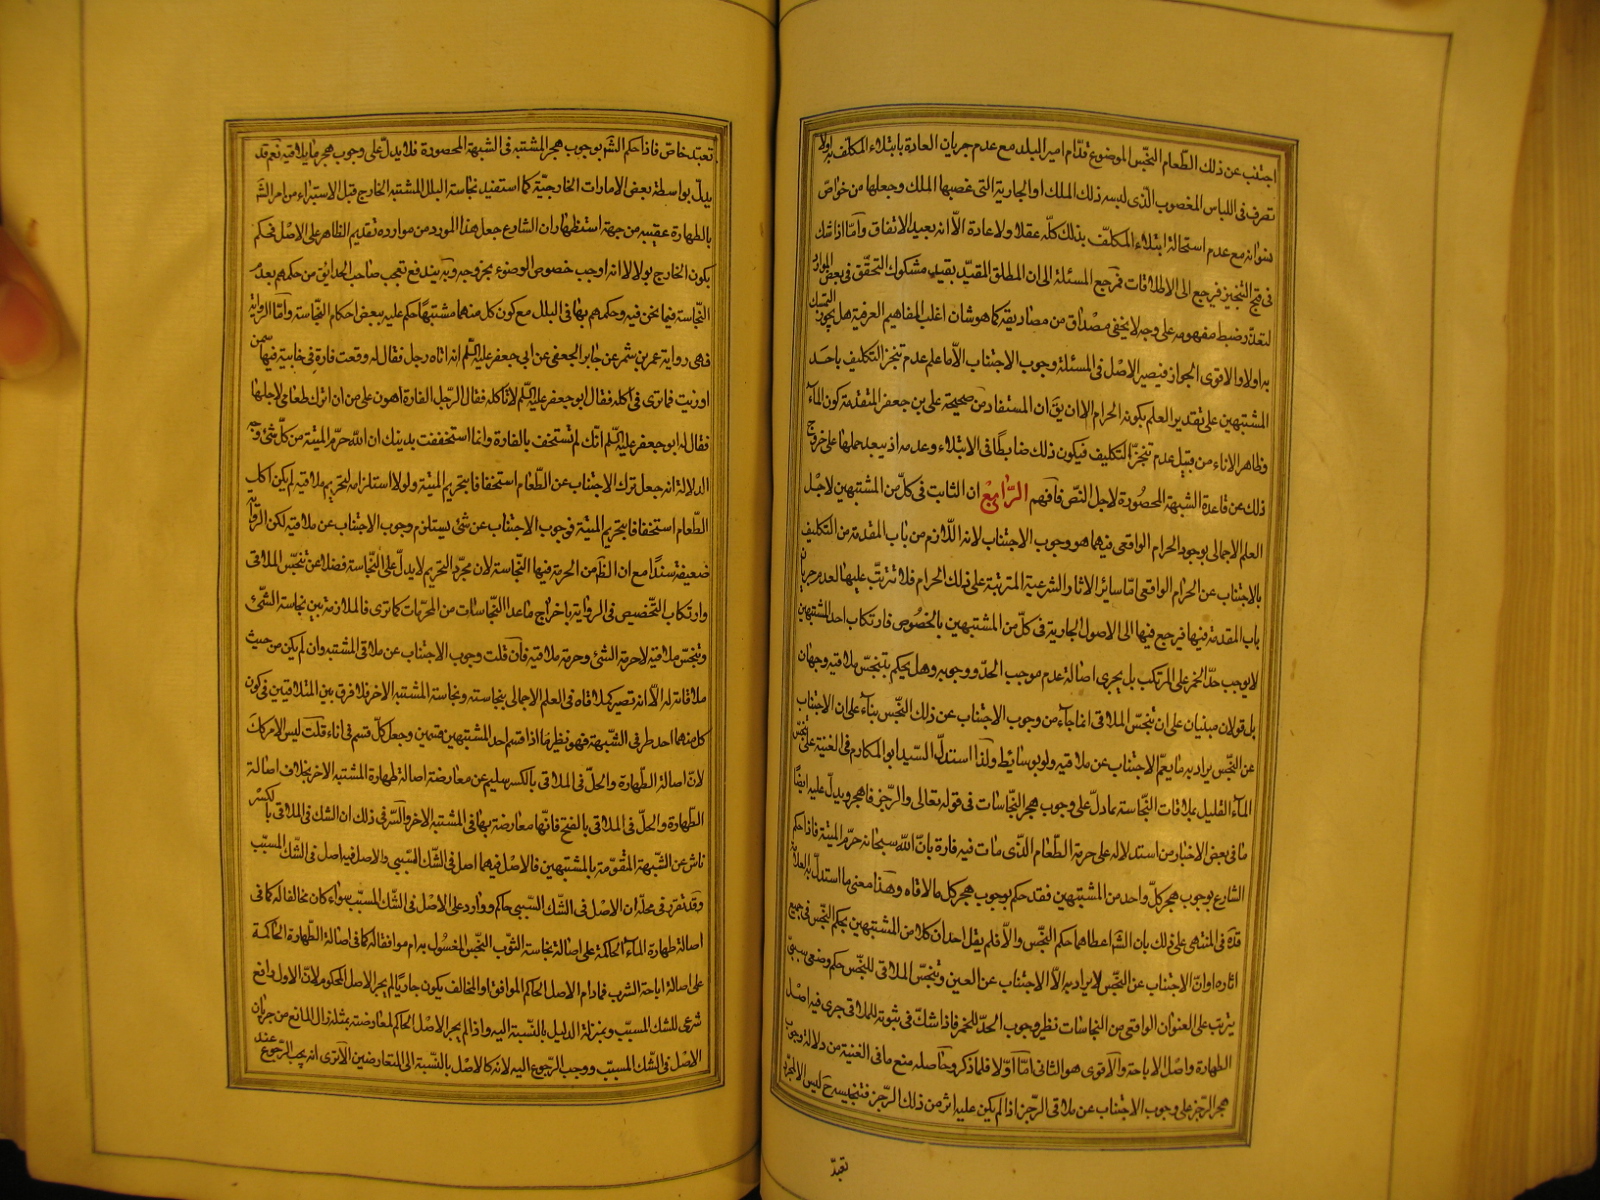 اجتنب عن ذلك الطعام النجس الموضوع قدام امير البلد مع عدم جريان العادة بابتلاء المكلف به او لا
تصرف فى اللباس المغصوب الذى لبسه ذلك الملك او الجارية التى غصبها الملك وجعلها من خواص
نسوانه مع عدم استحالة ابتلاء المكلف بذلك كله عقلا ولا عادة الا انه بعيد الاتفاق واما اذا شك
فى قبح التنجيز فيرجع الى الاطلاقات فمرجع المسئلة الى ان المطلق المقيد بقيد مشكوك التحقق فى بعض الموارد
لتعذر ضبط مفهومه على وجه لا يخفى مصداق من مصاديقه كما هو شان اغلب المفاهيم العرفية هل يجوز التمسك
به او لا والاقوى الجواز فيصير الاصل فى المسئلة وجوب الاجتناب الا ما علم عدم تنجز التكليف باحد
المشتبهين على تقدير العلم بكونه الحرام الا ان يق ان المستفاد من صحيحة على بن جعفر المتقدمة كون الماء
وظاهر الاناء من قبيل عدم تنجز التكليف فيكون ذلك ضابطا فى الابتلاء وعدمه اذ يبعد حملها على خروج
ذلك عن قاعدة الشبهة المحصورة لاجل النص فافهم الرابع ان الثابت فى كل من المشتبهين لاجل
العلم الاجمالى بوجود الحرام الواقعى فيهما هو وجوب الاجتناب لانه اللازم من باب المقدمة من التكليف
بالاجتناب عن الحرام الواقعى اما سائر الاثار الشرعية المترتبة على ذلك الحرام فلا تترتب عليها لعدم جريان
باب المقدمة فيها فيرجع فيها الى الاصول الجارية فى كل من المشتبهين بالخصوص فارتكاب احد المشتبهين
لا يوجب حد الخمر على المرتكب بل يجرى اصالة عدم موجب الحد ووجوبه وهل يحكم بتنجس ملاقيه وجهان
بل قولان مبنيان على ان تنجس الملاقى انما جاء من وجوب الاجتناب عن ذلك النجس بناء على ان الاجتناب
عن النجس يراد به ما يعم الاجتناب عن ملاقيه ولو بوسائط ولذا استدل السيد ابو المكارم فى الغنية على تنجس
الماء القليل بملاقات النجاسة بما دل على وجوب هجر النجاسات فى قوله تعالى والرجز فاهجر ويدل عليه ايضا
ما فى بعض الاخبار من استدلاله على حرمة الطعام الذى مات فيه فارة بان الله سبحانه حرم الميتة فاذا حكم
الشارع بوجوب هجر كل واحد من المشتبهين فقد حكم بوجوب هجر كل ما لاقاه وهذا معنى ما استدل به العلامة
قده فى المنتهى على ذلك بان الش اعطاهما حكم النجس والا فلم يقل احد ان كلا من المشتبهين بحكم النجس فى جميع
اثاره او ان الاجتناب عن النجس لا يراد به الا الاجتناب عن العين وتنجس الملاقى للنجس حكم وضعى سببى
يترتب على العنوان الواقعى من النجاسات نظير وجوب الحد للخمر فاذا شك فى ثبوته للملاقى جرى فيه اصل
الطهارة واصل الاباحة والاقوى هو الثانى اما اولا فلما ذكر وحاصله منع ما فى الغنية من دلالة وجوب
هجر الرجز على وجوب الاجتناب عن ملاقى الرجز اذا لم يكن عليه اثر من ذلك الرجز فتنجيسه ح ليس الا لمجرد
تعبد
تعبد خاص فاذا حكم الش بوجوب هجر المشتبه فى الشبهة المحصورة فلا يدل على وجوب هجر ما يلاقيه نعم قد
يدل بواسطة بعض الامارات الخارجية كما استفيد نجاسة البلل المشتبه الخارج قبل الاستبراء من امر الش
بالطهارة عقيبه من جهة استظهار ان الشارع جعل هذا المورد من موارد تقديم الظاهر على الاصل فحكم
بكون الخارج بولا لا انه اوجب خصوص الوضوء بخروجه وبه يندفع تعجب صاحب الحدائق من حكمهم بعدم
النجاسة فيما نحن فيه وحكمهم بها فى البلل مع كون كل منهما مشتبها حكم عليه ببعض احكام النجاسة واما الرواية
فهى رواية عمر بن شمر عن جابر الجعفى عن ابى جعفر عليه السلم انه اتاه رجل فقال له وقعت فارة فى خابية فيها سمن
او زيت فما ترى فى اكله فقال ابو جعفر عليه السلم لا تاكله فقال الرجل الفارة اهون على من ان اترك طعامى لاجلها
فقال له ابو جعفر عليه السلم انك لم تستخف بالفارة وانما استخففت بدينك ان الله حرم الميتة من كل شئ وجه
الدلالة انه جعل ترك الاجتناب عن الطعام استخفافا بتحريم الميتة ولولا استلزامه لتحريم ملاقيه لم يكن اكل
الطعام استخفافا بتحريم الميتة فوجوب الاجتناب عن شئ يستلزم وجوب الاجتناب عن ملاقيه لكن الرواية
ضعيفة سندا مع ان الظ من الحرمة فيها النجاسة لان مجرد التحريم لا يدل على النجاسة فضلا عن تنجس الملاقى
وارتكاب التخصيص فى الرواية باخراج ما عدا النجاسات من المحرمات كما ترى فالملازمة بين نجاسة الشئ
وتنجس ملاقيه لا حرمة الشئ وحرمة ملاقيه فان قلت وجوب الاجتناب عن ملاقى المشتبه وان لم يكن من حيث
ملاقاته له الا انه تصير كملاقاه فى العلم الاجمالى بنجاسته ونجاسة المشتبه الاخر فلا فرق بين المتلاقيين فى كون
كل منهما احد طرفى الشبهة فهو نظير ما اذا قسم احد المشتبهين قسمين وجعل كل قسم فى اناء قلت ليس الامر كك
لان اصالة الطهارة والحل فى الملاقى بالكسر سليم عن معارضة اصالة طهارة المشتبه الاخر بخلاف اصالة
الطهارة والحل فى الملاقى بالفتح فانها معارضة بها فى المشتبه الاخر والسر فى ذلك ان الشك فى الملاقى بالكسر
ناش عن الشبهة المتقومة بالمشتبهين فالاصل فيهما اصل فى الشك السببى والاصل فيه اصل فى الشك المسبب
وقد تقرر فى محله ان الاصل فى الشك السببى حاكم ووارد على الاصل فى الشك المسبب سواء كان مخالفا له كما فى
اصالة طهارة الماء الحاكمة على اصالة نجاسة الثوب النجس المغسول به ام موافقا له كما فى اصالة الطهارة الحاكمة
على اصالة اباحة الشرب فما دام الاصل الحاكم الموافق او المخالف يكون جاريا لم يجر الاصل المحكوم لان الاول رافع
شرعى للشك المسبب وبمنزلة الدليل بالنسبة اليه واذا لم يجر الاصل الحاكم لمعارضته بمثله زال المانع من جريان
الاصل فى الشك المسبب ووجب الرجوع اليه لانه كالاصل بالنسبة الى المتعارضين الا ترى انه يجب الرجوع عند